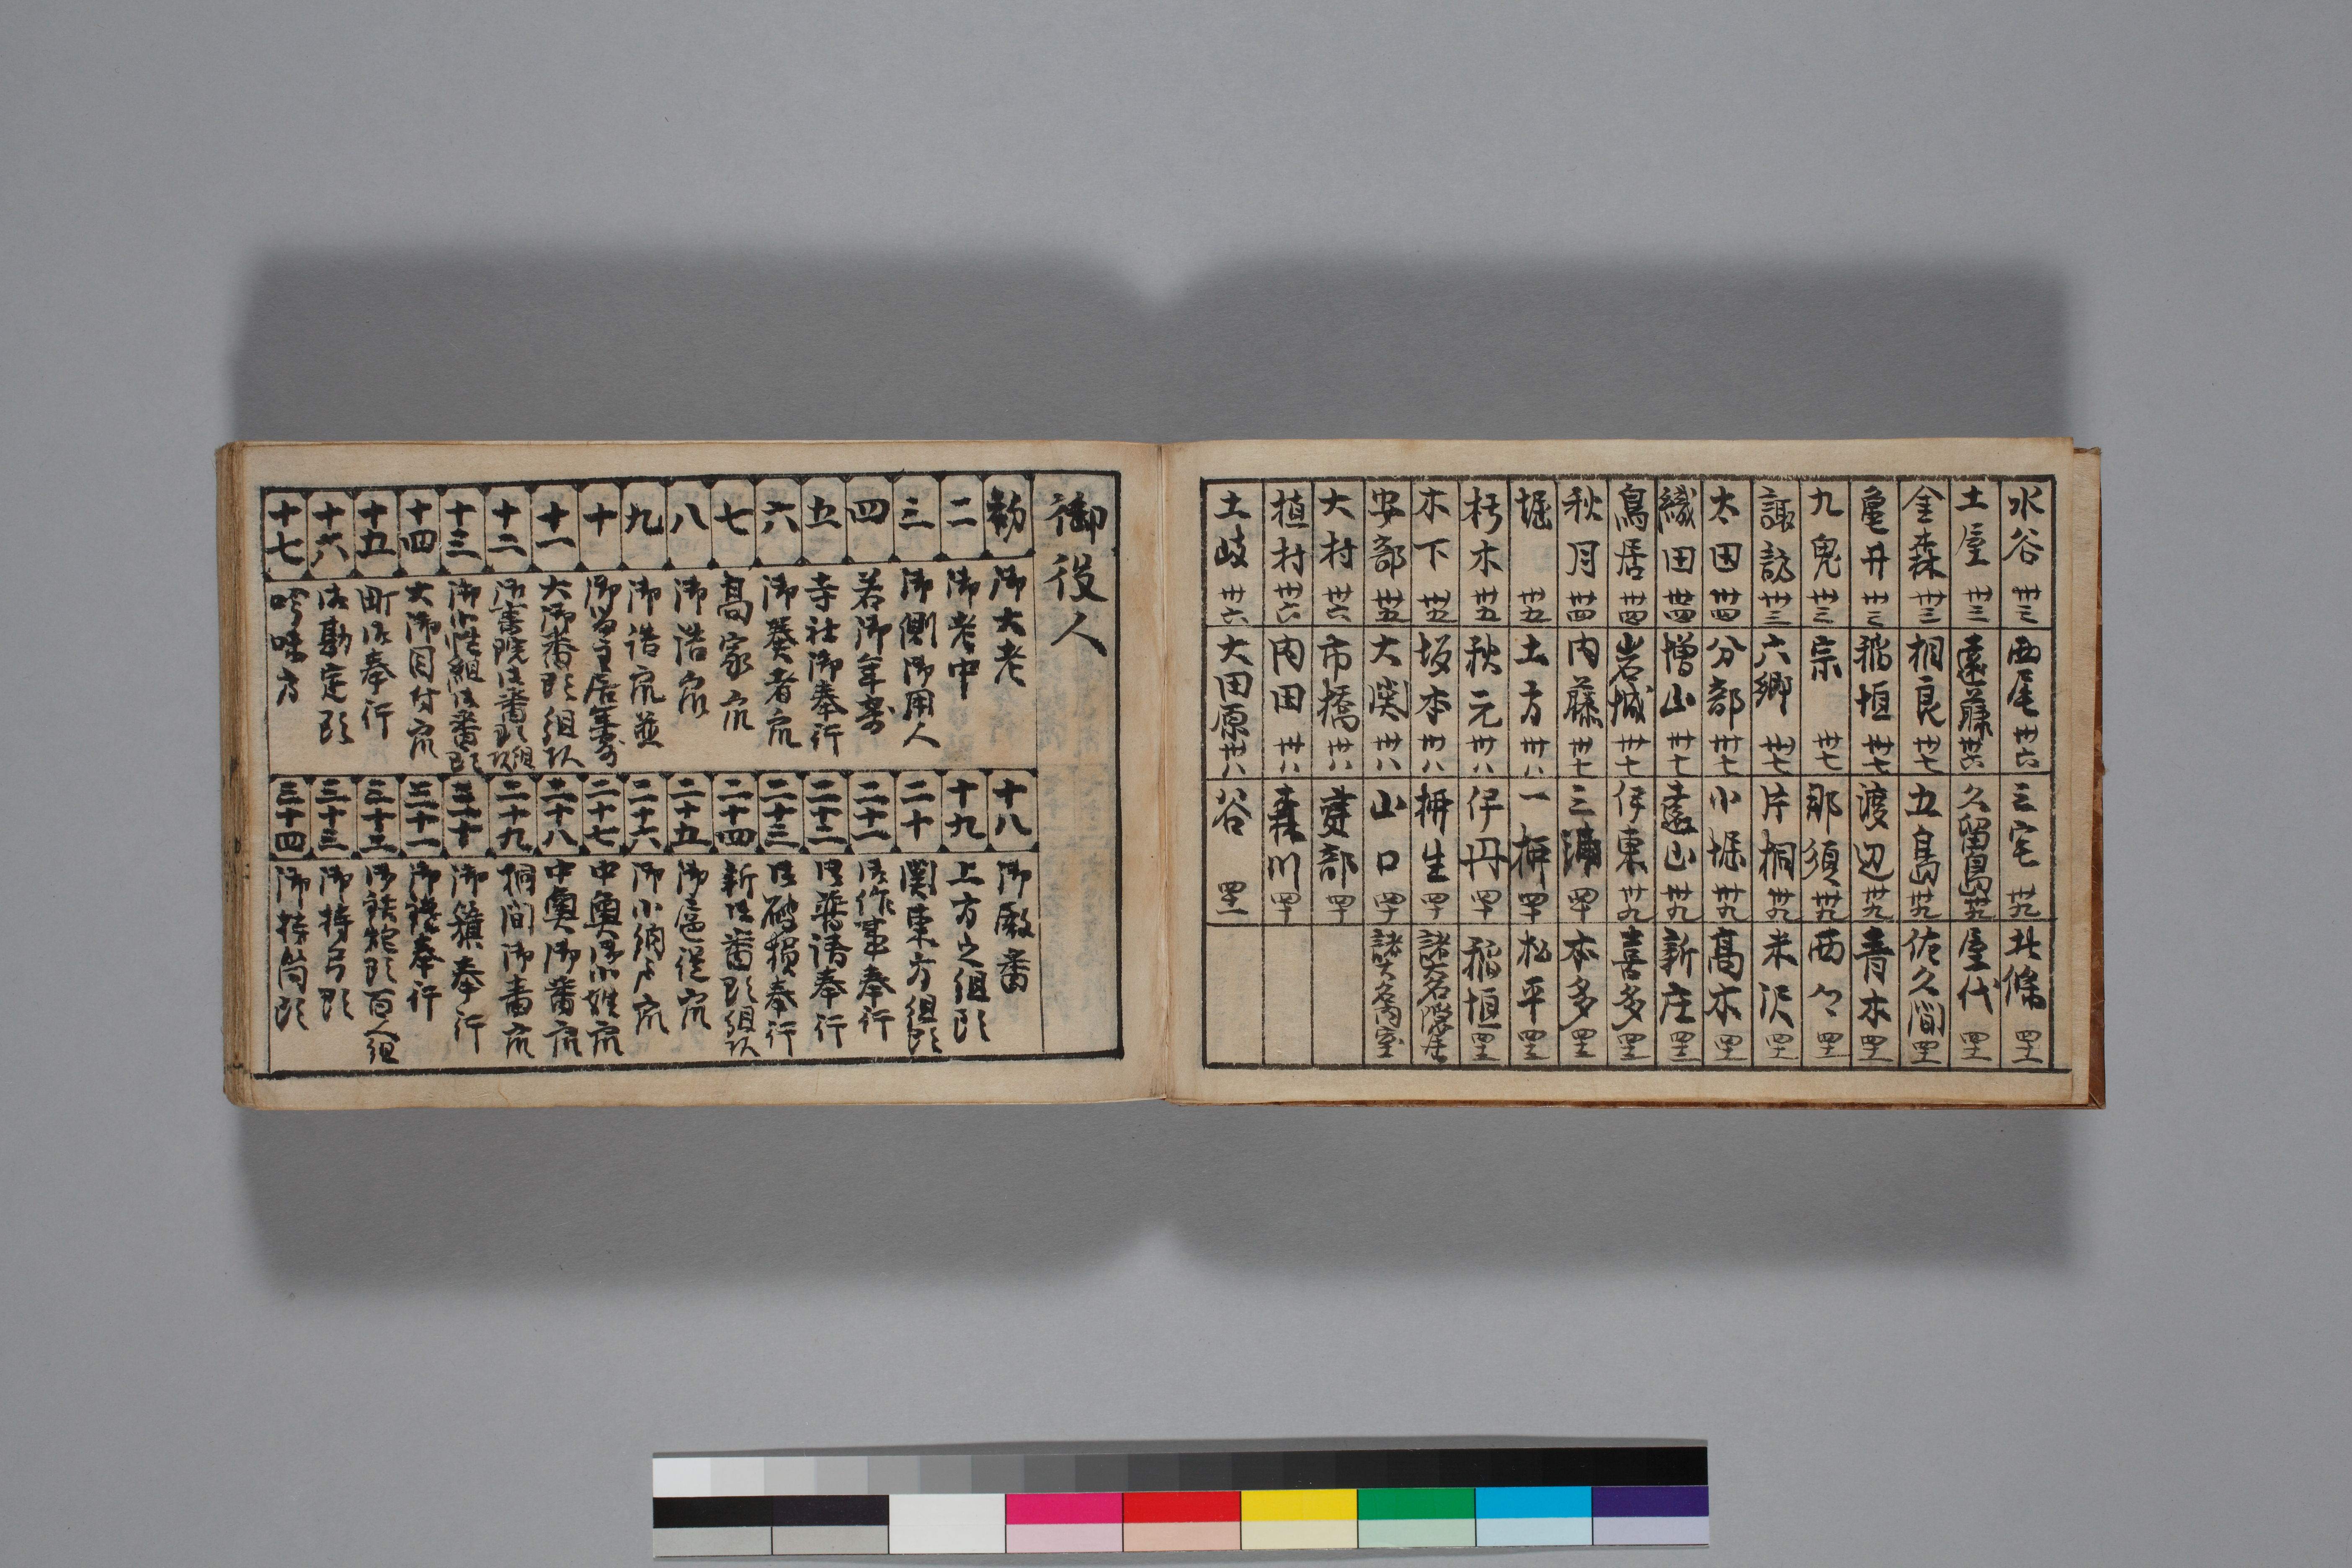 水谷 卅三
土屋 卅三
金森 卅三
亀井 卅三
九鬼 卅三
諏訪 卅三
太田 卅四
織田 卅四
鳥居 卅四
秋月 卅四
堀 卅五
朽木 卅五
木下 卅五
安部 卅五
大村 卅六
植村 卅六
土岐 卅六
西尾 卅六
遠藤 卅六
相良 卅七
稲垣 卅七
宗 卅七
六郷 卅七
分部 卅七
増山 卅七
岩城 卅七
内藤 卅七
土方 卅八
秋元 卅八
坂本 卅八
大関 卅八
市橋 卅八
内田 卅八
大田原 卅八
三宅 卅九
久留島 卅九
五島 卅九
渡辺 卅九
那須 卅九
片桐 卅九
小堀 卅九
遠山 卅九
伊東 卅九
三浦 四十
一柳 四十
伊丹 四十
柳生 四十
山口 四十
建部 四十
森川 四十
谷 四十一
北條 四十一
屋代 四十一
佐久間 四十一
青木 四十一
西々 四十一
米沢 四十一
高木 四十一
新庄 四十一
喜多 四十一
本多 四十一
松平 四十一
稲垣 四十一
諸大名隠居
諸大名
御役人
初 御大老
二 御老中
三 御側御用人
四 若御年寄
五 寺社御奉行
六 御奏者衆
七 高家衆
八 御詰衆
九 御詰衆並
十 御留主居年寄
十一 大御番頭組頭
十二 御書院御番頭組頭
十三 御小性組御番頭
十四 大御目付衆
十五 町御奉行
十六 御勘定頭
十七 吟味方
十八 御厩番
十九 上方之組頭
二十 関東方組頭
二十一 御作事奉行
二十二 御普請奉行
二十三 御破損奉行
二十四 新御番頭組頭
二十五 御扈従衆
二十六 御小納戸衆
二十七 中奥御小姓衆
二十八 中奥御番衆
二十九 桐間御番衆
三十 御籏奉行
三十一 御鑓奉行
三十二 御鉄炮頭百人組
三十三 御持弓頭
三十四 御持筒頭